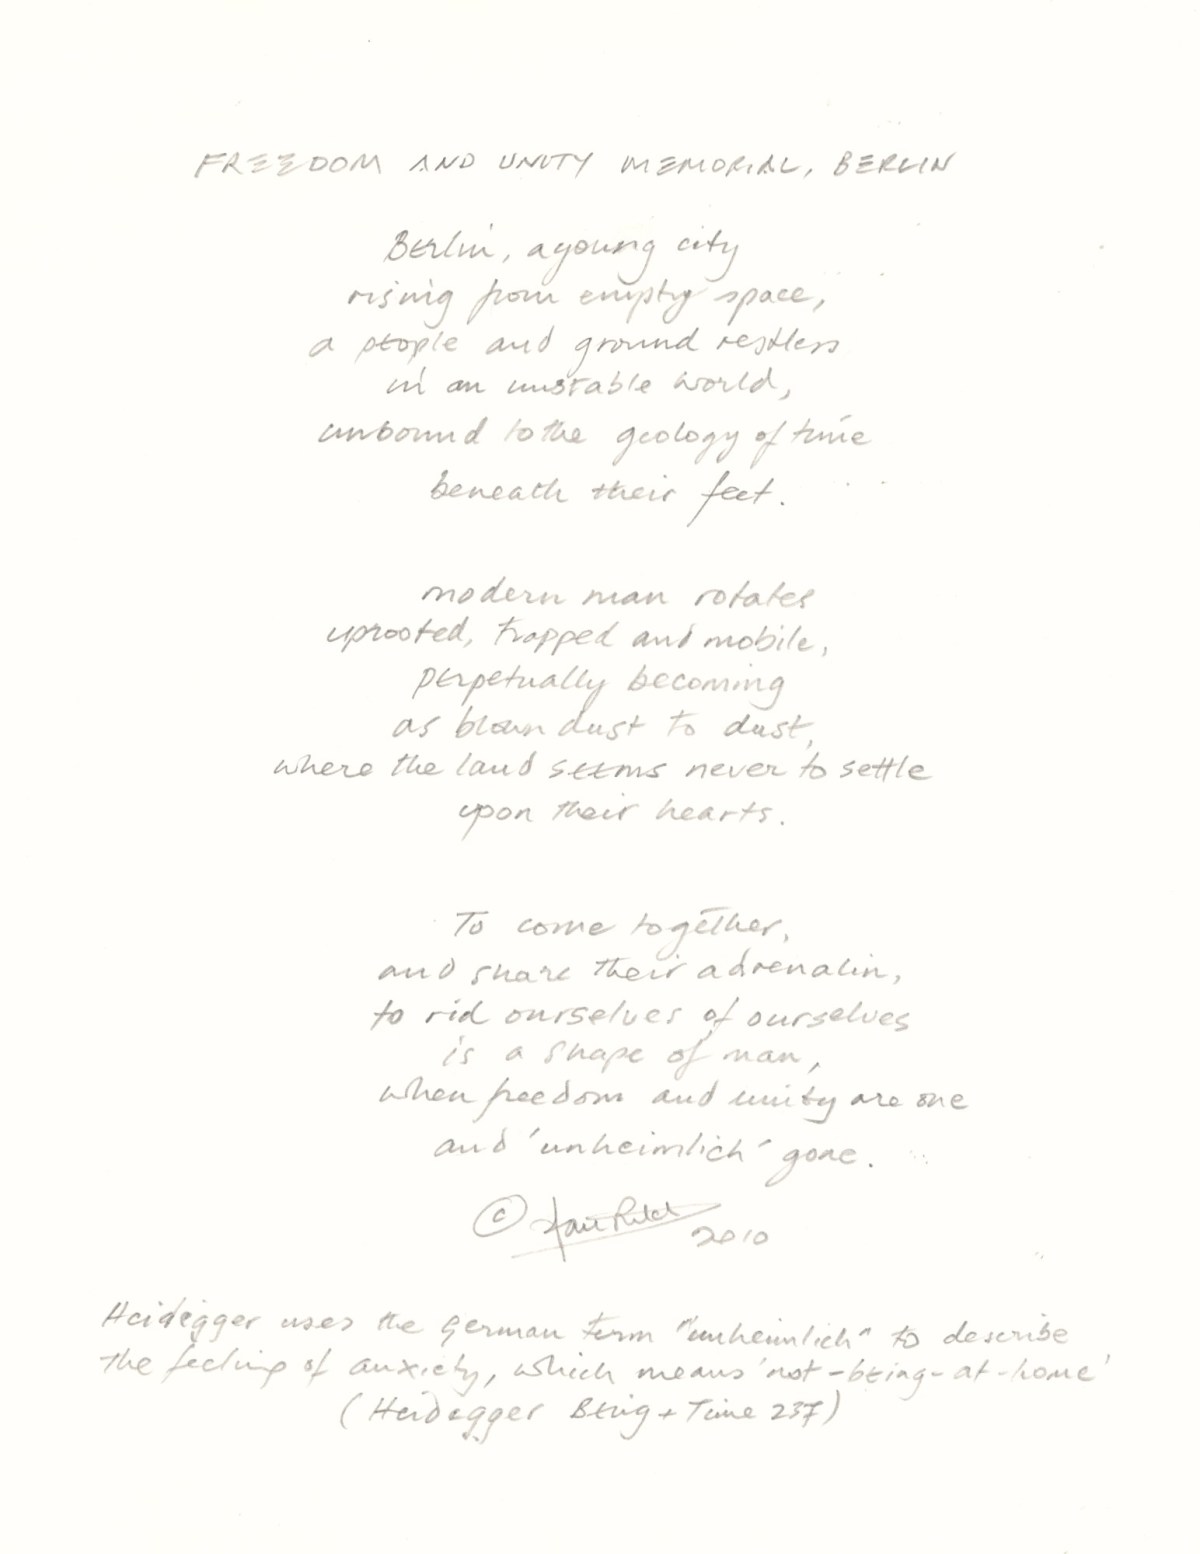 FREEDOM AND UNITY MEMORIAL, BERLIN
Berlin, a young city
rising from empty space,
a people and ground restless
in an unstable world,
unbound to the geology of time
beneath their feet.
modern man rotates
uprooted, trapped and mobile,
perpetually becoming
as blown dust to dust,
where the land seems never to settle
upon their hearts.
To come together,
and share their adrenalin,
to rid ourselves of ourselves
is a shape of man,
when freedom and unity are one
and 'unheimlich' gone.
©
2010
Heidegger uses the German term "unheimlich" to describe
the feeling of anxiety, which means 'not-being-at-home'
(Heidegger Being + Time 237)